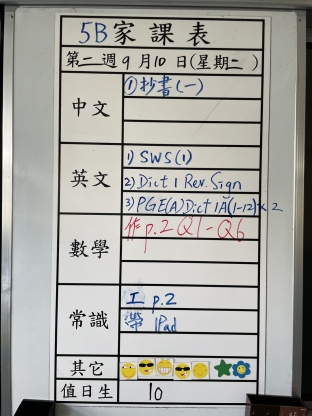 5B家課表
第二週9月10日(星期二)
中文
①抄書(一)
英文
1) SWS(1)
2) Dict 1 Rev. Sign
3) PGE(A) Dict 1A(1-12)×2
數學
作 p.2 Q1-Q6
常識
工 p.2
帶 iPad
其它
值日生 10